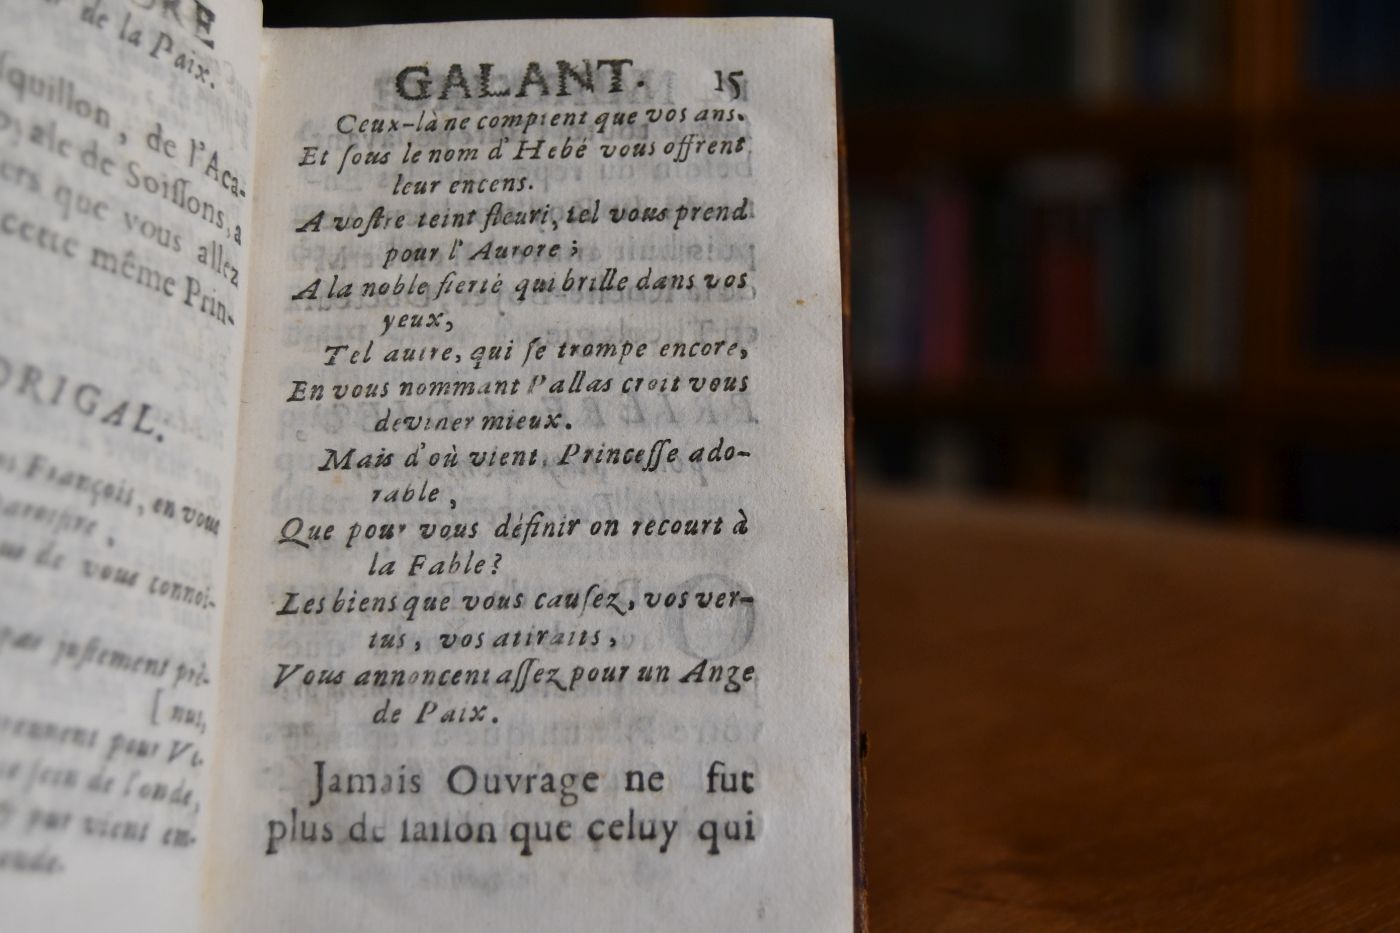 ORE
de la Paix.
squillon, de l'Aca-
ale de Soissons, a
ers que vous allez
cette même Prin-
DRIGAL.
François, en vous
de vous connoi-
par justement pré-
[ nut,
prennent pour Ve-
sein de l'onde,
par vient en-
GALANT. 15
Ceux-là ne comptent que vos ans.
Et ſous le nom d'Hebé vous offrent
leur encens.
A voſtre teint fleuri, tel vous prend
pour l'Aurore;
A la noble fierté qui brille dans vos
yeux,
Tel autre, qui ſe trompe encore,
En vous nommant Pallas croit vous
deviner mieux.
Mais d'où vient, Princeſſe ado-
rable,
Que pour vous définir on recourt à
la Fable?
Les biens que vous cauſez, vos ver-
tus, vos attraits,
Vous annoncent aſſez pour un Ange
de Paix.
Jamais Ouvrage ne fut
plus de ſaiſon que celuy qui